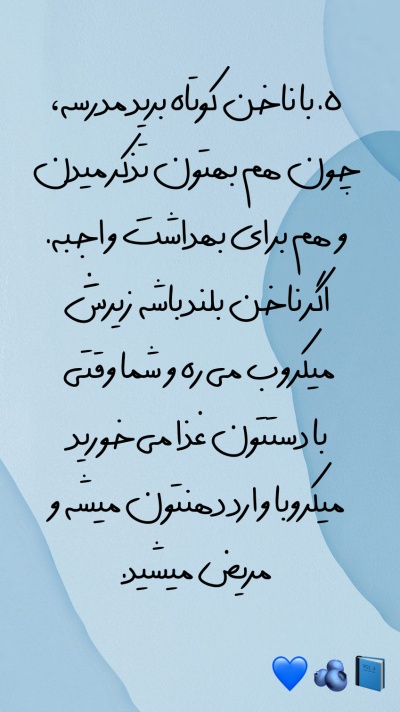 ۵. با ناخن کوتاه برید مدرسه،
چون هم بهتون تذکر میدن
و هم برای بهداشت واجبه.
اگر ناخن بلند باشه زیرش
میکروب می ره و شما وقتی
با دستتون غذا می خورید
میکروبا وارد دهنتون میشه و
مریض میشید.